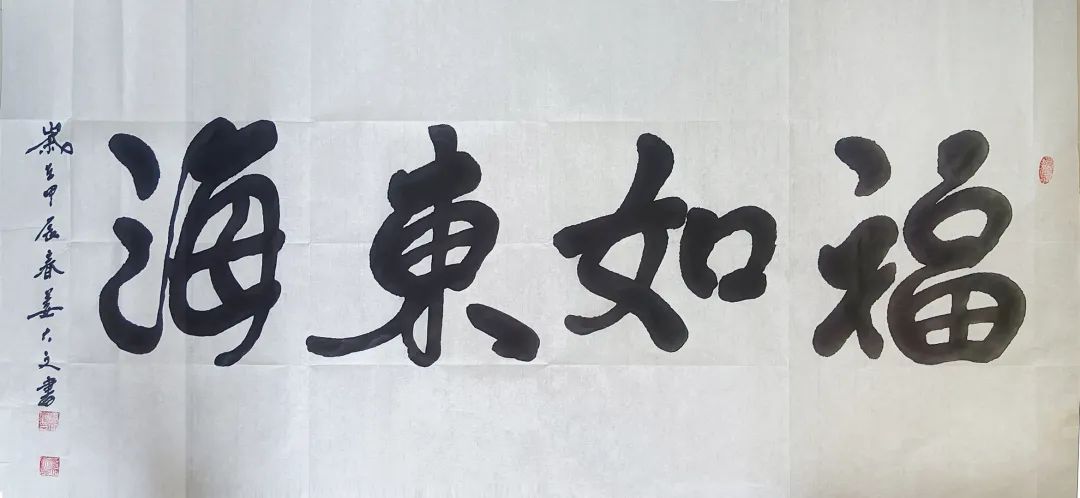 福如東海
歲在甲辰春姜大文書